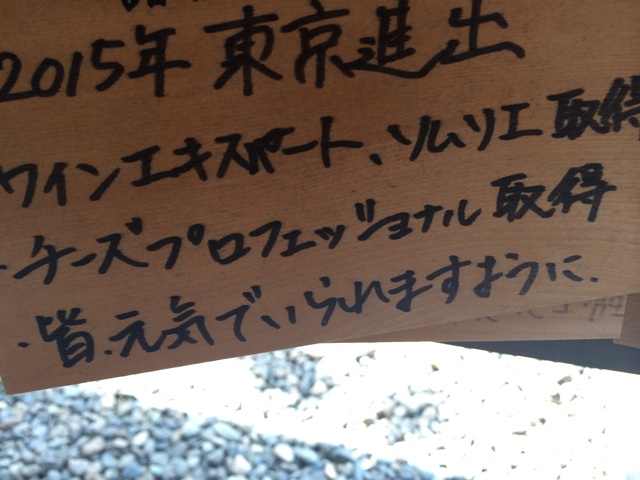 2015年 東京進出
ワインエキスパート、ソムリエ取得
・チーズプロフェッショナル取得
・皆、元気でいられますように.